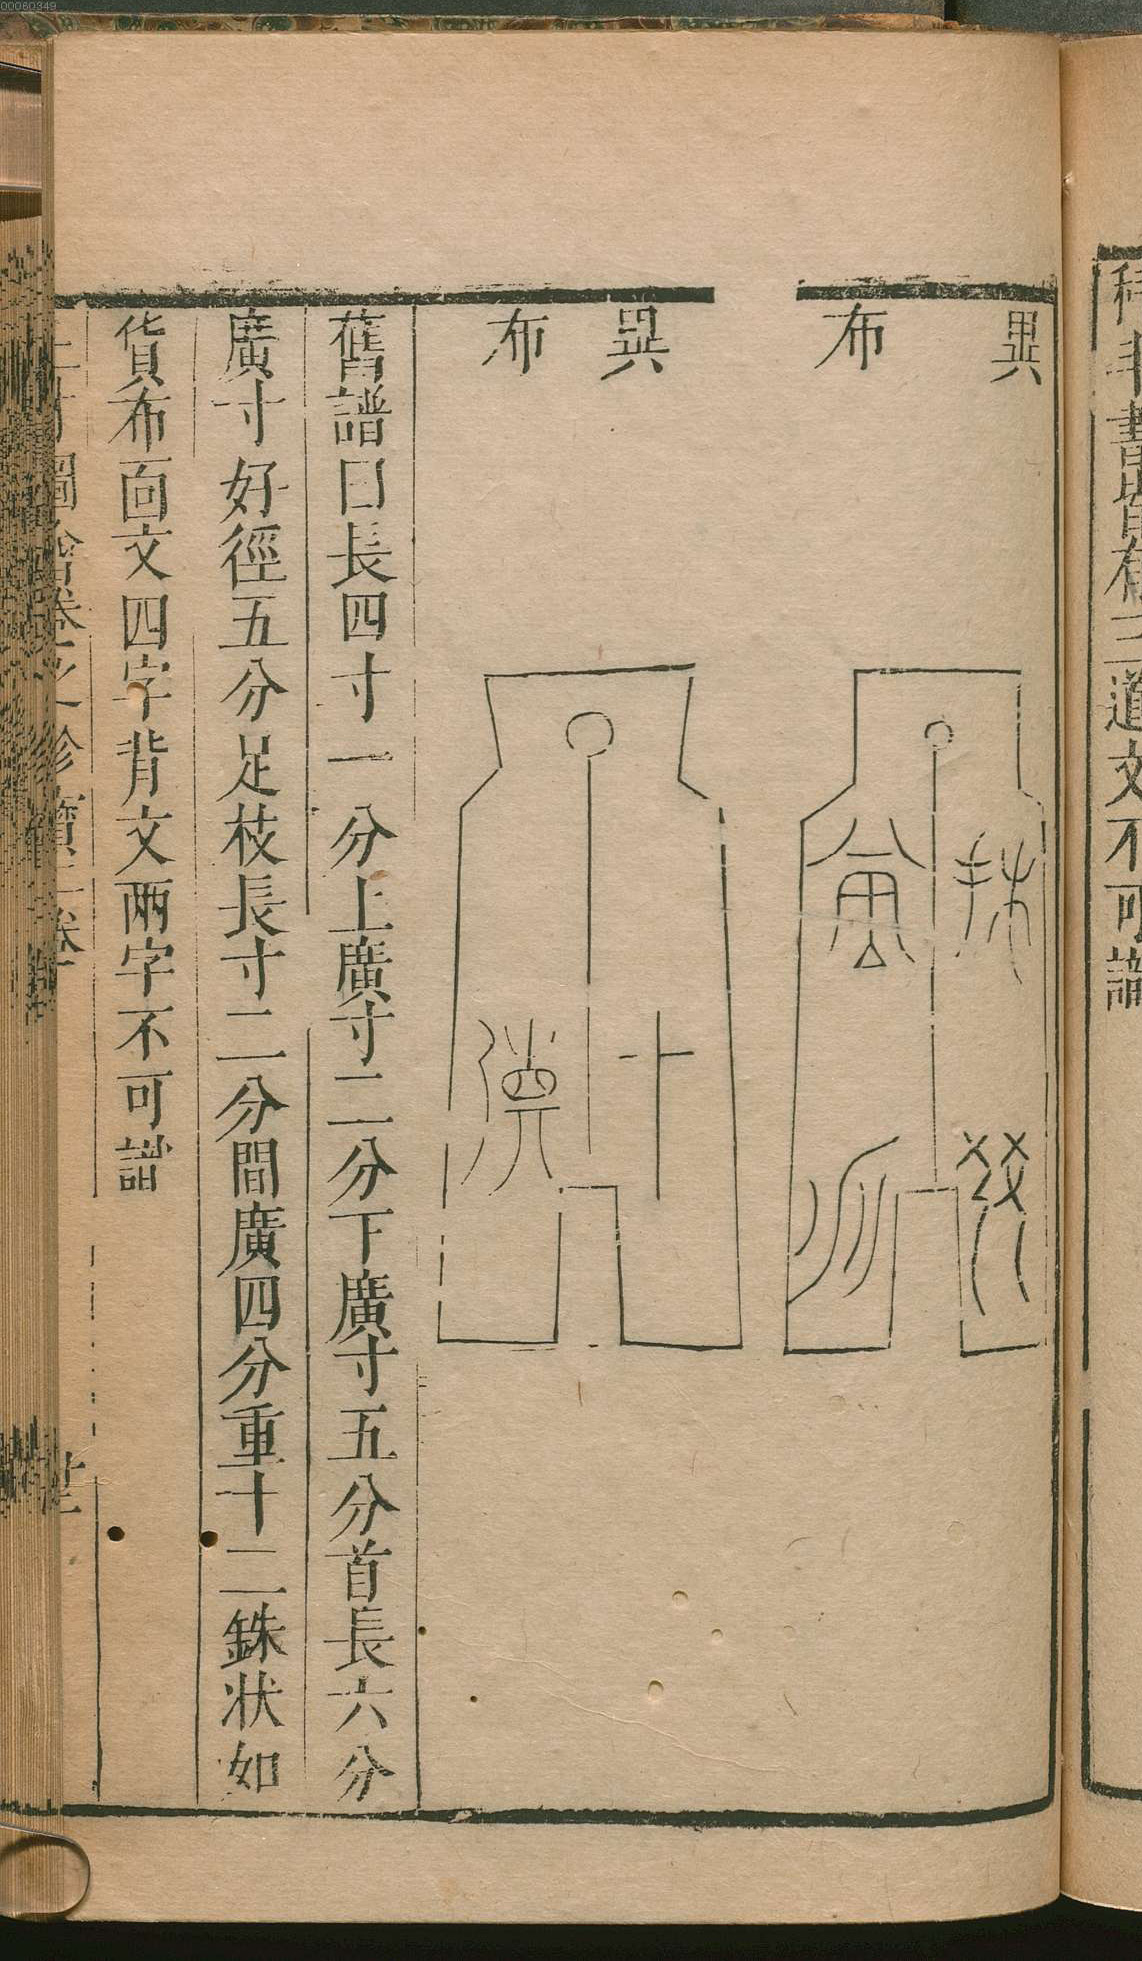 00060349
異布
異布
十
舊譜曰長四寸一分上廣寸二分下廣寸五分首長六分
廣寸好徑五分足枝長寸二分間廣四分重十二銖状如
貨布面文四字背文兩字不可譜
三才圖會卷之珍寶二卷